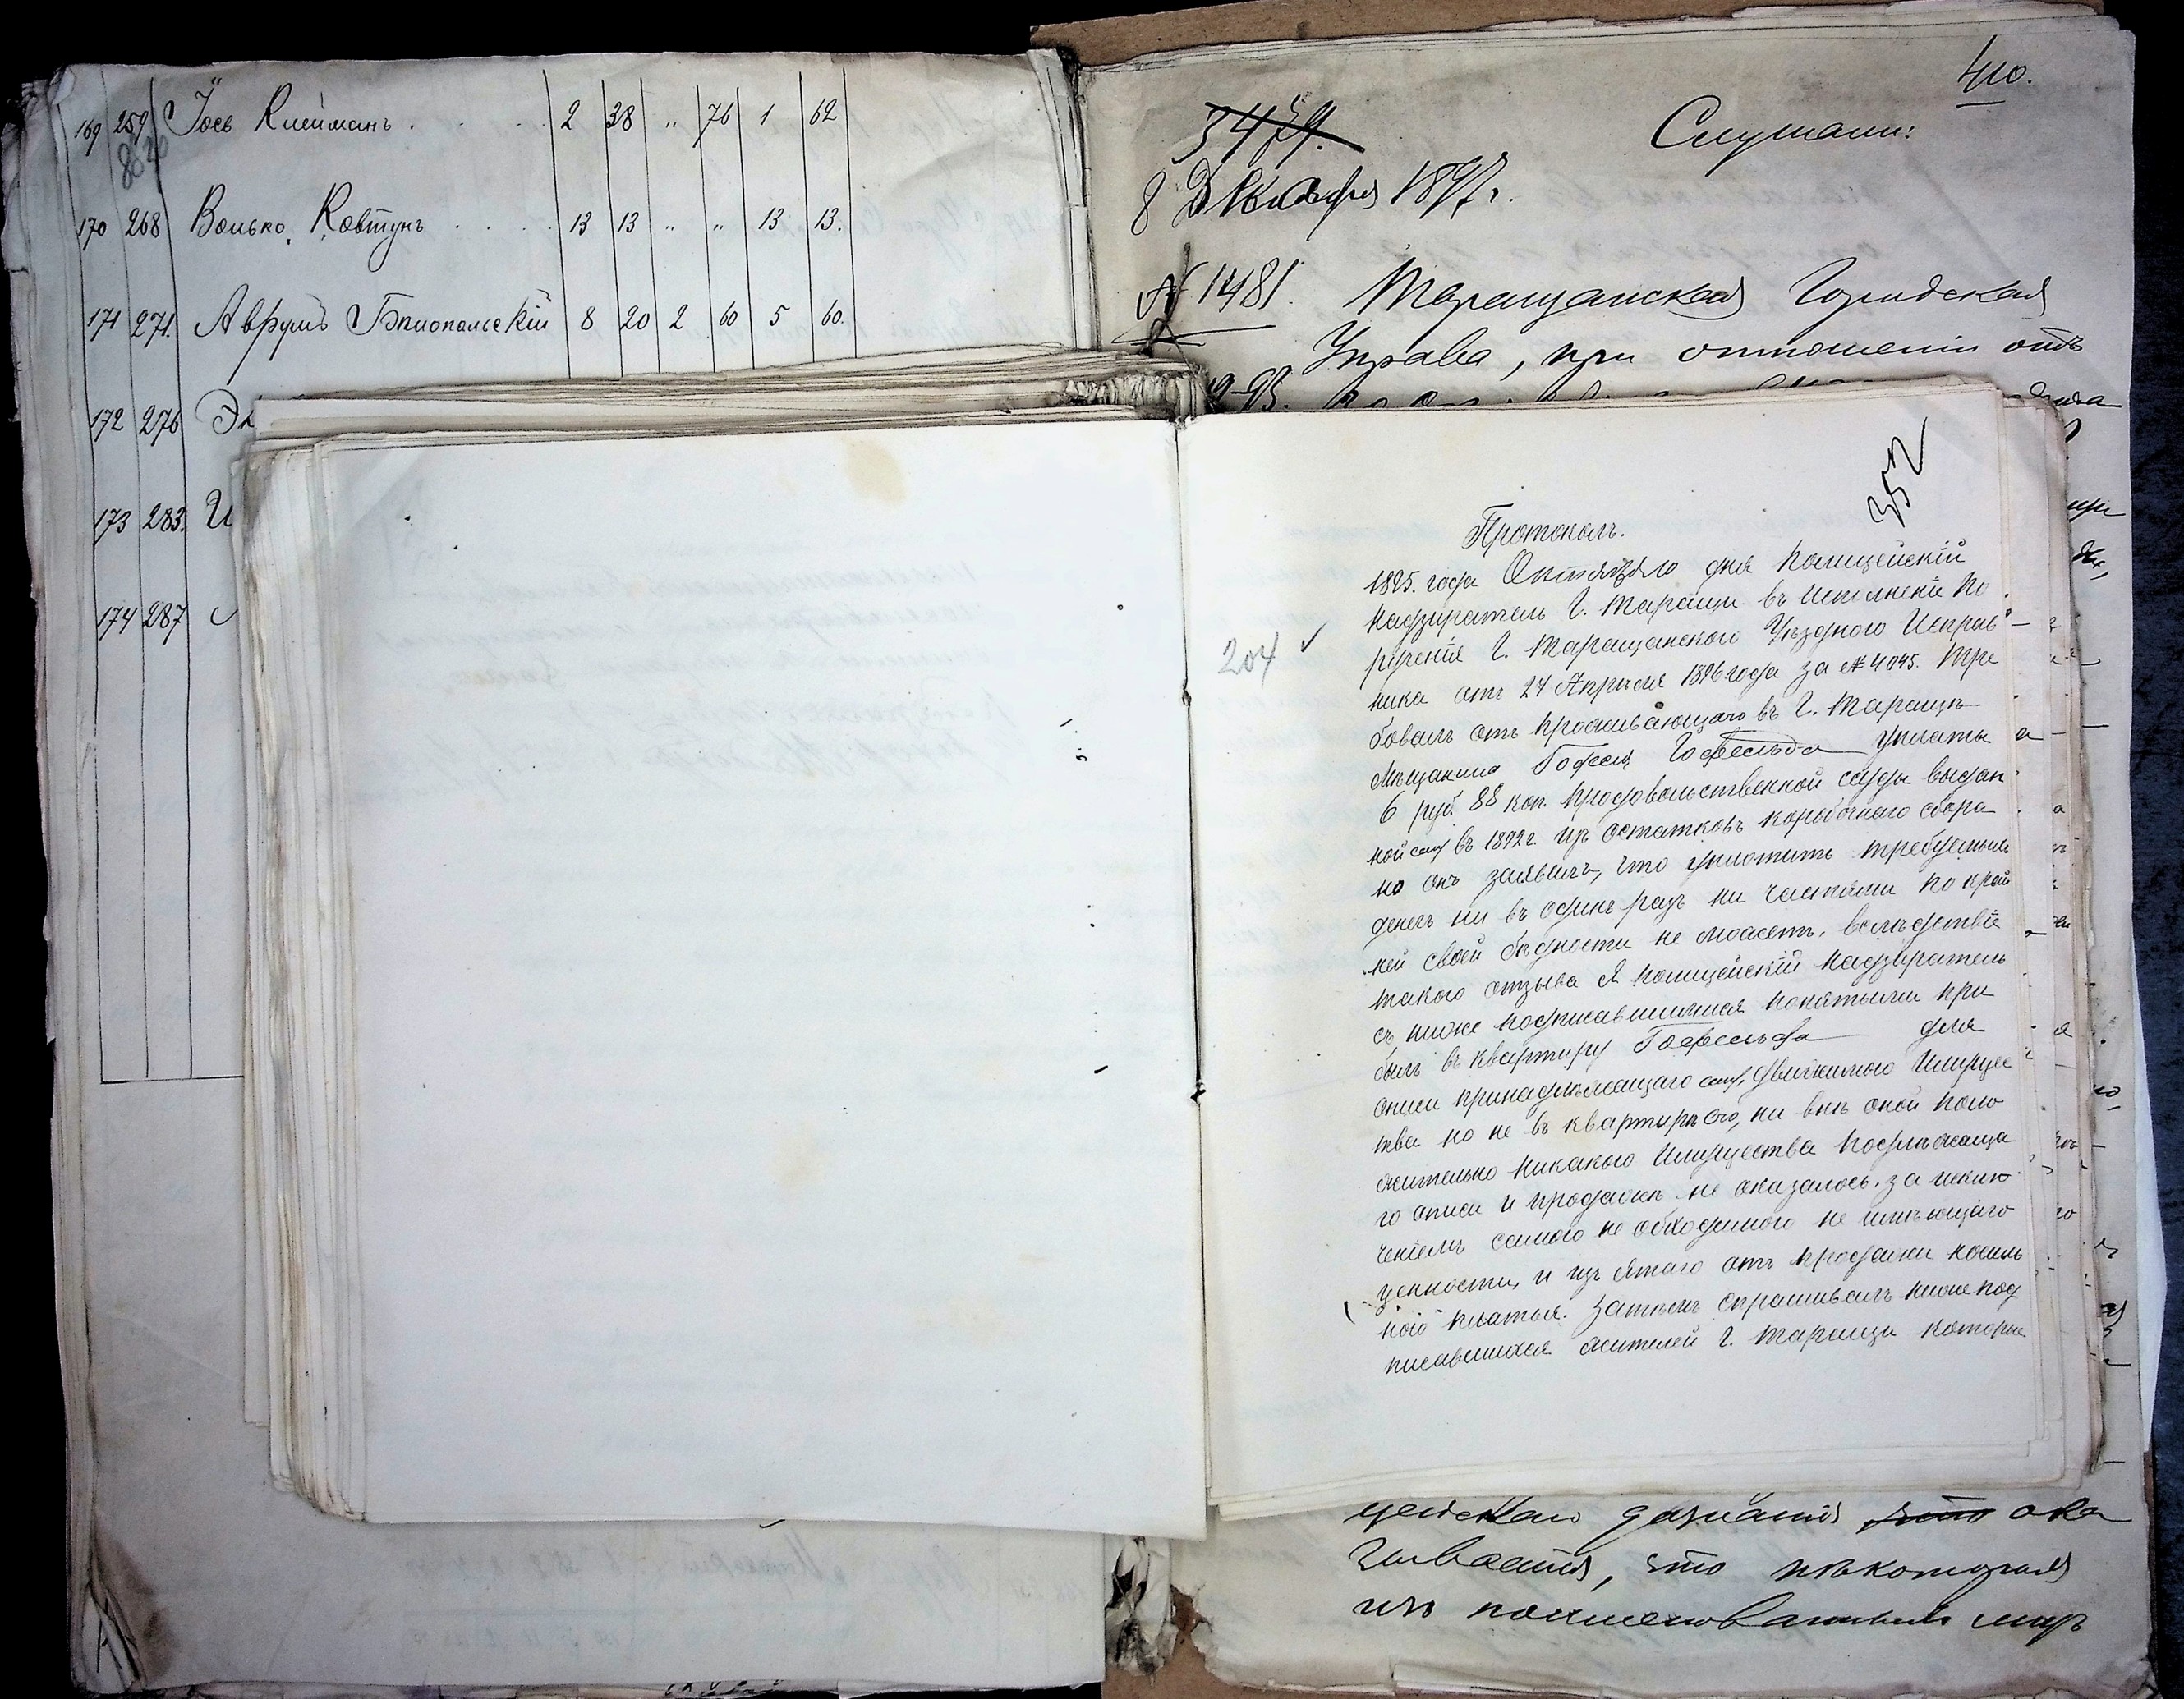 169 259 Іось Клейманъ . . . . 2 38 „ 76 1 62
80
170 268 Волько Ковтунъ . . . . 13 13 „ „ 13 13.
171 271. Аврумъ Бѣлопольскій 8 20 2 60 5 60.
172 276
173 283.
174 287
410.
3479.
Слушали:
8 Декабря 1897 г.
№ 1481. Таращанская Городская
Управа, при отношеніи отъ
352
Протоколъ.
204
1895. года Октября дня Полицейскій
Надзиратель г. Таращи въ исполненіе по
рученія г. Таращанскаго Уѣзднаго Исправ
ника отъ 24 Апрѣля 1896 года за № 4045. тре
бовалъ отъ проживающаго въ г. Таращѣ
мѣщанина Гофельда уплаты
6 руб. 88 коп. продовольственной ссуды выдан
ной ему въ 1892 г. изъ остатковъ коробочнаго сбора
но онъ заявилъ, что уплотить требуемыхъ
денегъ ни въ одинъ разъ ни частями по край
ней своей бѣдности не можетъ. вслѣдствіе
такого отзыва я полицейскій надзиратель
съ ниже подписавшимися понятыми при
былъ въ квартиру Гофельда для
описи принадлежащаго ему движимаго имущес
тва но не въ квартирѣ его, ни внѣ оной поло
жительно никакого имущества подлежаща
го описи и продажѣ не оказалось. за исклю
ченіемъ самого не обходимого не имѣющаго
ценности, и изъятаго отъ продажи
ного платья. Затѣмъ спрашивалъ ниже под
писавшихся жителей г. Таращи которые
цейскаго дознанія что ока
зывается, что нѣкоторыя
изъ поименованныхъ лицъ